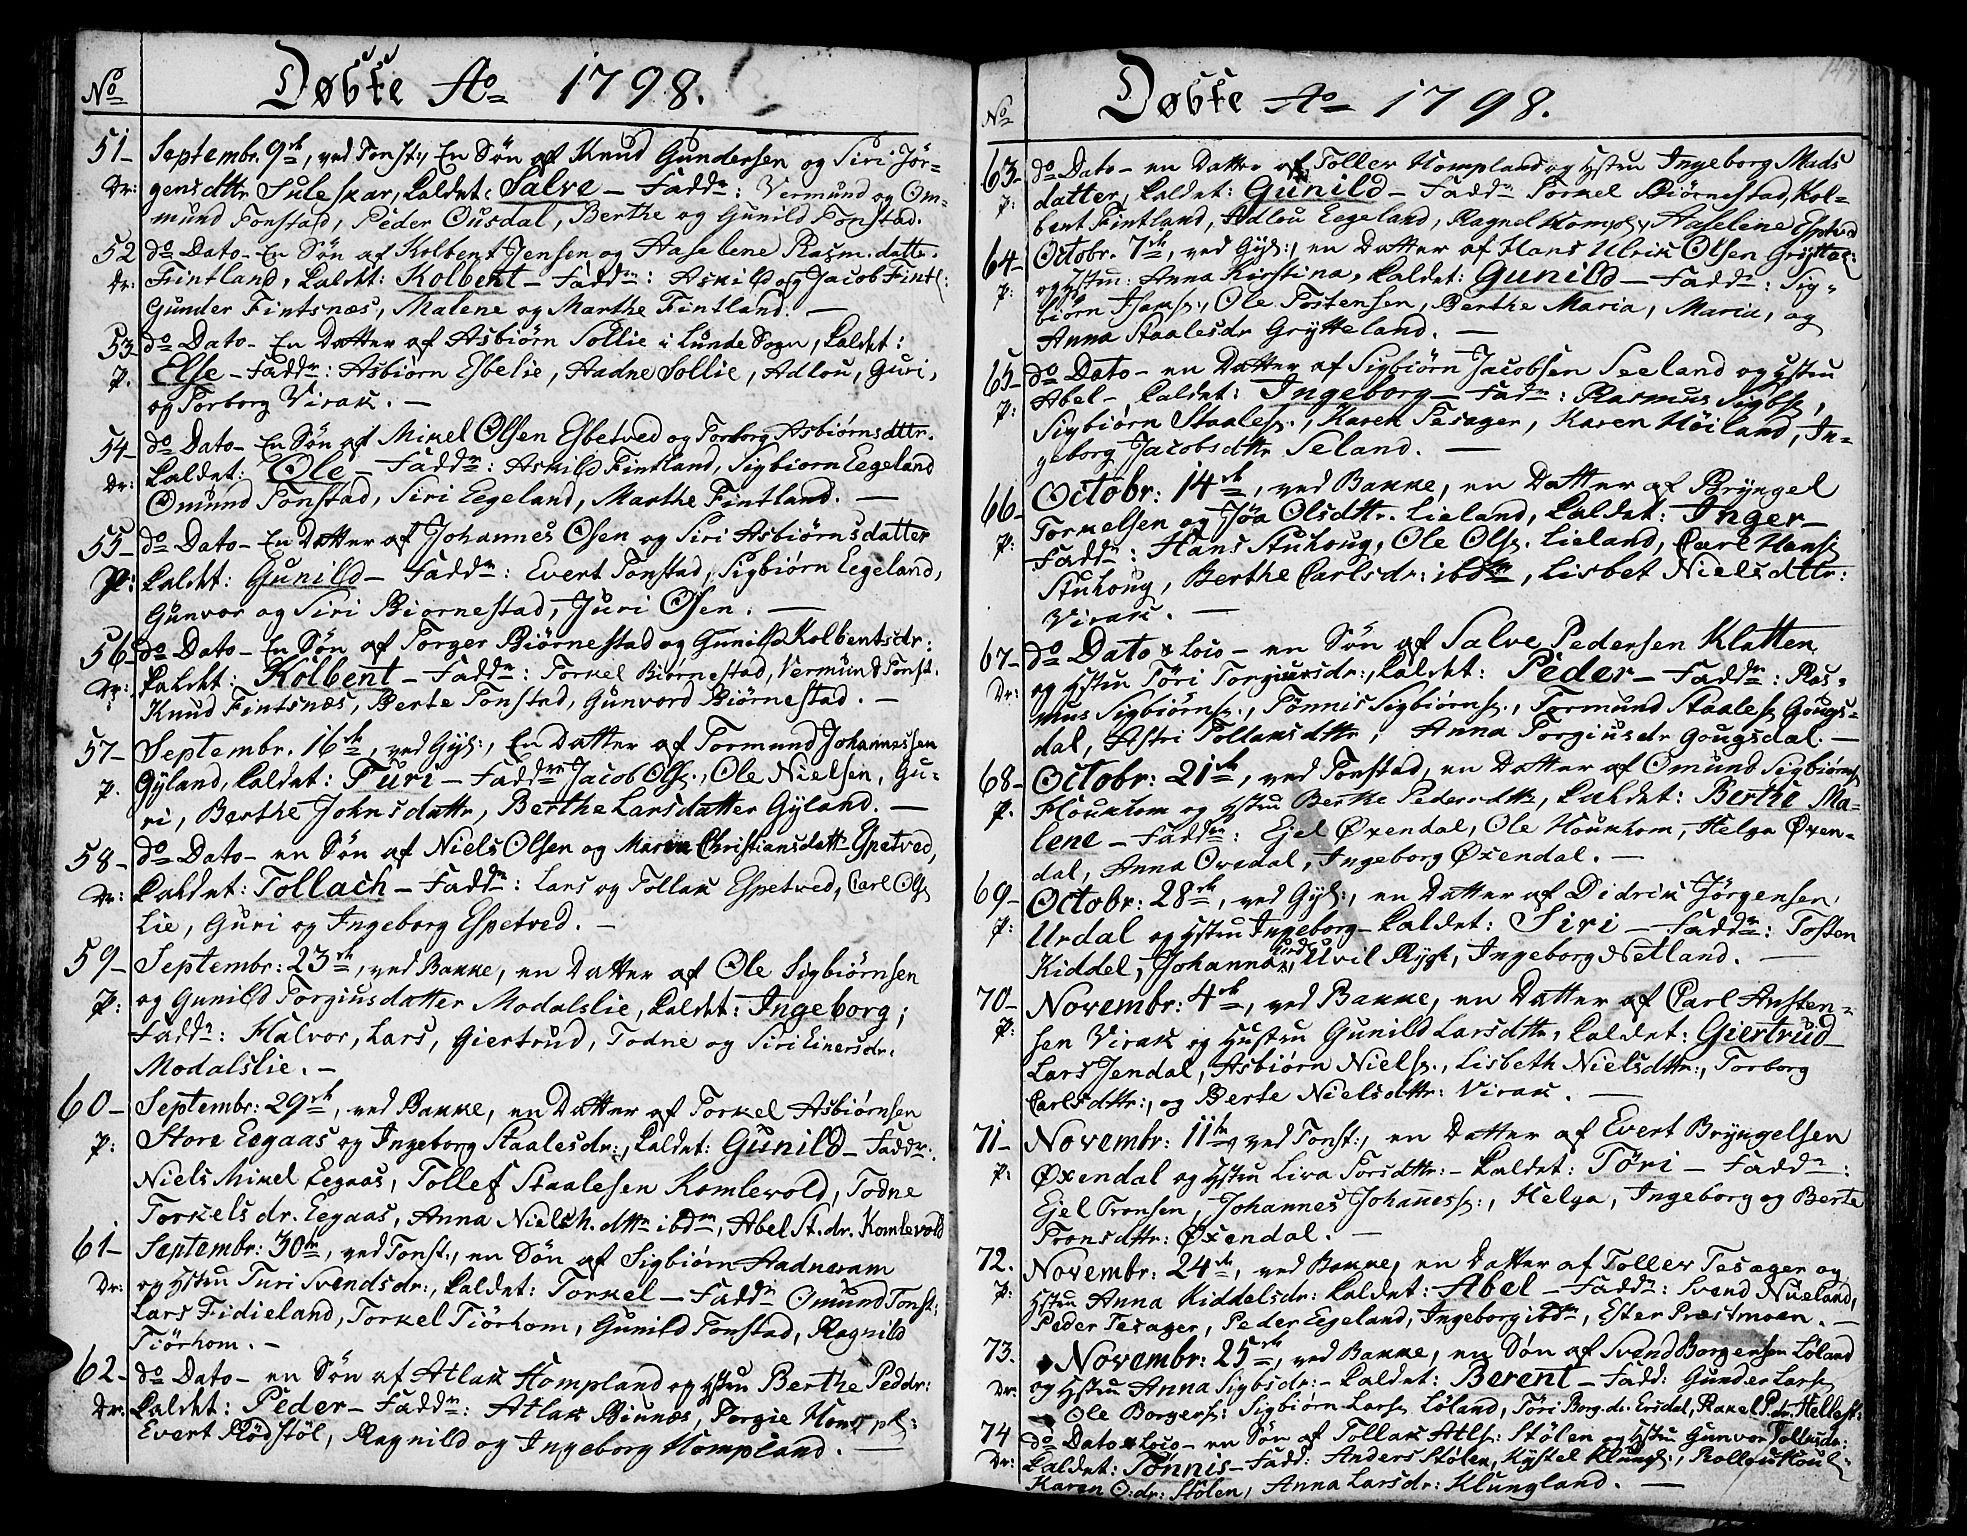 No Døbte Ao 1798.
51- Septembr. 9de, ved Tonst:, En Søn af Knud Gundersen og Siri Jör-
Dr: gensdttr Suleskar, kaldet: Salve – Faddr: Vermund og Om-
mund Tonstad, Peder Ousdal, Berthe og Gunild Tonstad.
52 do Dato – En Søn af Kolbent Jensen og Aaselene Rasm.datter
Dr: Fintland, kaldet: Kolbent – Faddr: Askild og Jacob Fintl:
Gunder Fintsnæs, Malene og Marthe Fintland. —
53- do Dato – En Datter af Asbiørn Sollie i Lunde Sogn, kaldet:
p. Else – Faddr: Asbiørn Esbelie, Aadne Sollie, Adlou, Guri,
og Torborg Virak. —
54- do Dato – En Søn af Mikel Olsen Esbetved og Torborg Asbiørnsdttr.
Dr: kaldet: Ole – Faddr: Askild Fintland, Sigbiorn Eegeland
Omund Tonstad, Siri Eegeland, Marthe Fintland. —
55- do Dato – En Datter af Johannes Olsen og Siri Asbiørnsdatter
p: kaldet: Gunild – Faddr: Evert Tonstad, Sigbiörn Eegeland,
Gunvor og Siri Biornestad, Juri Olsen. —
56- do Dato – En Søn af Torger Biörnestad og Gunild Kolbentsdr:
Dr: kaldet: Kolbent – Faddr: Torkel Biörnestad, Vermund Tonst.
Knud Fintsnæs, Berte Tonstad, Gunvord Biörnestad. —
57- Septembr. 16de, ved Gyl:, En Datter af Tormund Johannessen
p. Gyland, kaldet: Turi – Faddr Jacob Ols:, Ole Nielsen, Gu-
ri, Berthe Johnsdattr, Berthe Larsdatter Gyland. —
58- do Dato – en Søn af Niels Olsen og Maren Christiansdattr Espetved,
Dr: kaldet: Tollach – Faddr: Lars og Tollak Espetved, Carl Ols:
Lie, Guri og Ingeborg Espetved. —
59- Septembr: 23de, ved Bakke, en Datter af Ole Sigbiörnsen
p: og Gunild Torgiusdatter Modalslie, kaldet: Ingeborg;
Faddr: Halvor, Lars, Giertrud, Todne og Siri Einersdr.
Modalslie. —
60- Septembr: 29de, ved Bakke, en Datter af Torkel Asbiörnsen
p: Store Eegaas og Ingeborg Staalesdr:, kaldet: Gunild – Faddr:
Niels Mikel Eegaas, Tollef Staalesen Komlevold, Todne
Torkelsdr. Eegaas, Anna Nielsh.dttr ibdm, Abel St.dr. Komlevold
61- Septembr: 30te, ved Tonst:, en Søn af Sigbiörn Aadneram
Dr: og Hstru Turi Svendsdr:, kaldet: Torkel – Faddr Omund Tonst:
Lars Fidieland, Torkel Tiörhom, Gunild Tonstad, Ragnild
Tiörhom. —
62- do Dato – en Søn af Atlak Hompland og Hstru Berthe Peddr:
Dr: kaldet: Peder – Faddr: Atlak Binnes, Torgie Hompl:
Evert Rödstöl, Ragnild og Ingeborg Hompland. —
No Døbte Ao 1798.
63- do Dato – en Datter af Tollev Hompland og Hstru Ingeborg Mads
p: datter, kaldet: Gunild – Faddr Torkel Biörnestad, Kol-
bent Fintland, Adlou Eegeland, Ragnel Hompl:, Aaselene Esptvd
64- Octobr. 7de, ved Gyl:, en Datter af Hans Ulrik Olsen Grÿttel:
p: og Hstru: Anna Kirstina, kaldet: Gunild – Faddr: Sig-
biörn Isaks:, Ole Tostensen, Berthe Maria, Maria, og
Anna Staalesdr Grÿtteland. —
65- do Dato – en Datter af Sigbiörn Jacobsen Seeland og Hstru
p: Abel – kaldet: Ingeborg – Fadr: Rasmus Sigbs:,
Sigbiörn Staales:, Karen Tesager, Karen Höiland, In-
geborg Jacobsdttr Seland. —
66- Octobr: 14de, ved Bakke, en Datter af Brÿngel
p: Torkelsen og Jöa Olsdttr. Lieland, kaldet: Inger –
Faddr: Hans Stuhoug, Ole Ols: Lieland, Carl Hans:
Stuhoug, Berthe Carlsdr: ibdm, Lisbet Nielsdttr:
Virak. —
67- do Dato & loco – en Søn af Salve Pedersen Klatten
Dr: og Hstru Töri Torgiusdr:, kaldet: Peder – Faddr: Ras-
mus Sigbiörns:, Tönnis Sigbiörns:, Tormund Staales: Gougs-
dal, Astri Tollaksdttr; Anna Torgiusdr Gougsdal. —
68- Octobr: 21de, ved Tonstad, en Datter af Omund Sigbiörns:
p. Houkhom og Hstru Berthe Pedersdttr, kaldet: Berthe Ma-
lene – Faddr: Ejel Øxendal, Ole Houkhom, Helga Øxen-
dal, Anna Ovedal, Ingeborg Øxendal. —
69- Octobr: 28de, ved Gyl:, en Datter af Didrik Jörgensen
p: Urdal og Hstru Ingeborg – kaldet: Siri – Faddr: Tosten
Kiddel, Johanna, Uril Rÿsl, Ingeborg Netland. —
70- Novembr: 4de, ved Bakke, en Datter af Carl Ansten-
p: sen Virak og Hustru Gunild Larsdttr, kaldet: Giertrud
Lars Jendal, Asbiörn Niels:, Lisbeth Nielsdttr:, Torborg
Carlsdttr:, og Berte Nielsdttr: Virak. —
71- Novembr: 11te, ved Tonst:, en Datter af Evert Brÿngelsen
p: Øxendal og Hstru Liva Torsdttr: – kaldet: Töri – Faddr:
Ejel Tronsen, Johannes Johanness:, Helga, Ingeborg og Berte
Tronsdttr: Øxendal. —
72. Novembr: 24de, ved Bakke, en Datter af Tollev Tesager og
p: Hstru Anna Kiddelsdr: kaldet: Abel – Faddr: Svend Nueland,
Peder Tesager, Peder Eegeland, Ingeborg ibdm, Ester Præstmoen. —
73. Novembr: 25de, ved Bakke, en Søn af Svend Borgersen Löland
Dr: og Hstru Anna Sigbsdr: – kaldet: Berent – Fadd: Gunder Lars:
Ole Borgers: Sigbiörn Lars: Löland, Töri Borg.dr. Ersdal, Rakel P.dr. Hellest:
74 do Dato & loco – en Søn af Tollak Atls: Stölen og Hstru Gunvor Tollaksdr:
Dr: kaldet: Tönnis – Fadd: Anders Stölen, Kÿstel Klungl:, Rollou Houl:
Karen O:dr: Stölen, Anna Larsdr: Klungland. —